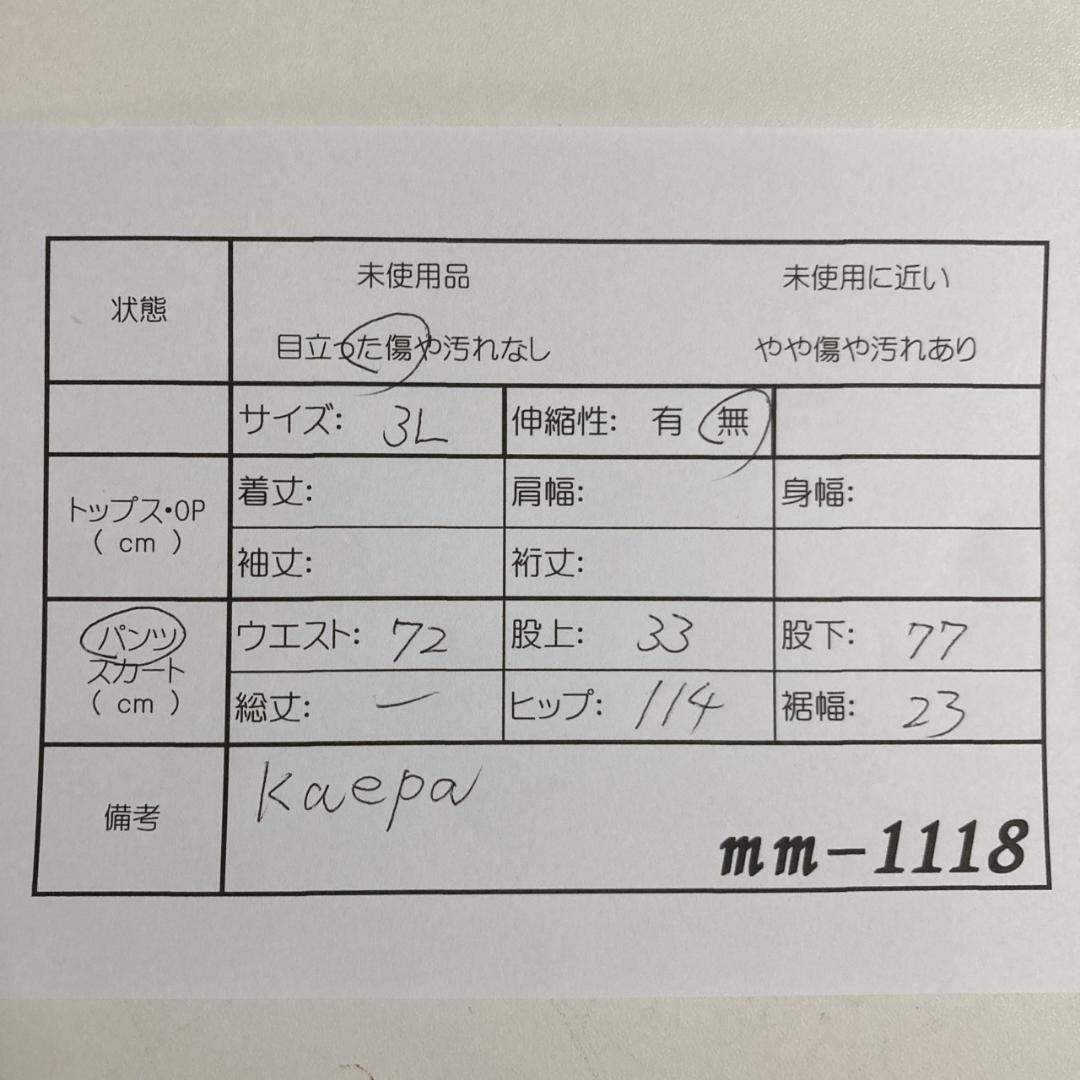 状態
未使用品 未使用に近い
目立った傷や汚れなし やや傷や汚れあり
サイズ: 3L 伸縮性: 有 無
トップス・OP
( cm )
着丈: 肩幅: 身幅:
袖丈: 裄丈:
パンツ
スカート
( cm )
ウエスト: 72 股上: 33 股下: 77
総丈: ー ヒップ: 114 裾幅: 23
備考
Kaepa
mm-1118